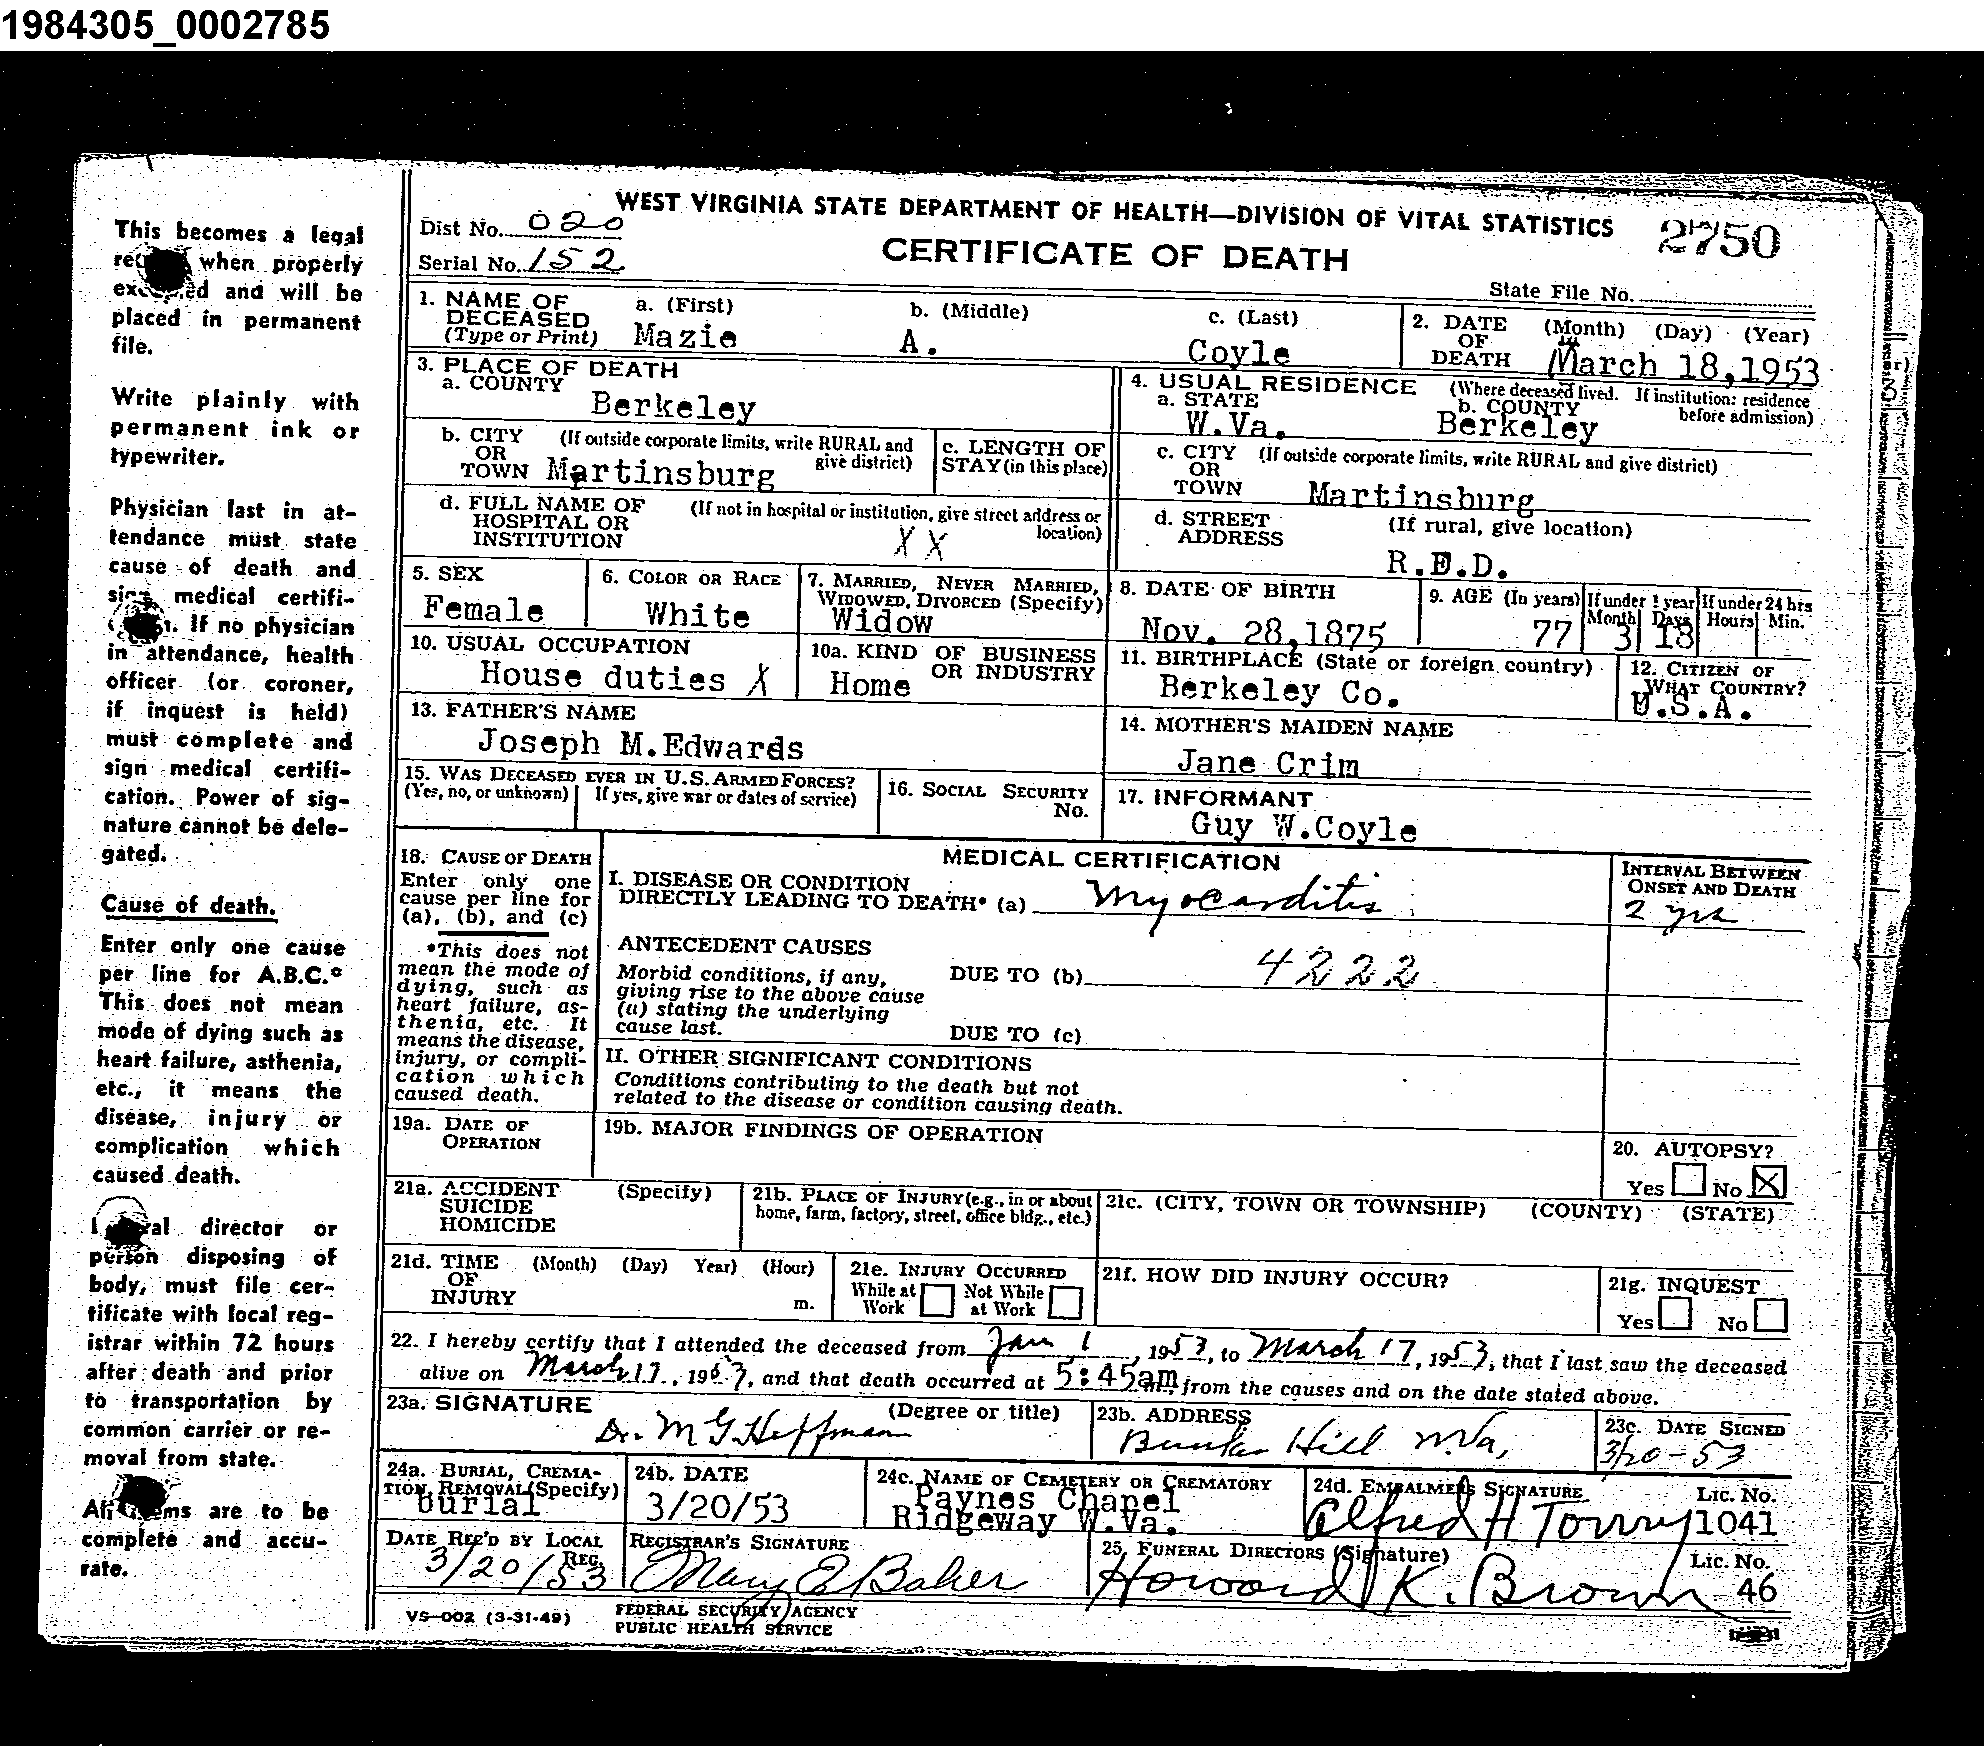 1984305_0002785
WEST VIRGINIA STATE DEPARTMENT OF HEALTH—DIVISION OF VITAL STATISTICS
Dist No. 020
Serial No. 152
CERTIFICATE OF DEATH
2750
State File No.
1. NAME OF DECEASED (Type or Print)
a. (First) Mazie
b. (Middle) A.
c. (Last) Coyle
2. DATE OF DEATH (Month) (Day) (Year)
March 18,1953
3. PLACE OF DEATH
a. COUNTY Berkeley
b. CITY OR TOWN (If outside corporate limits, write RURAL and give district) Martinsburg
c. LENGTH OF STAY (in this place)
d. FULL NAME OF HOSPITAL OR INSTITUTION (If not in hospital or institution, give street address or location)
X X
4. USUAL RESIDENCE (Where deceased lived. If institution: residence before admission)
a. STATE W.Va.
b. COUNTY Berkeley
c. CITY OR TOWN (If outside corporate limits, write RURAL and give district)
Martinsburg
d. STREET ADDRESS (If rural, give location)
5. SEX Female
6. COLOR OR RACE White
7. MARRIED, NEVER MARRIED, WIDOWED, DIVORCED (Specify) Widow
8. DATE OF BIRTH Nov. 28,1875
9. AGE (In years) 77
If under 1 year Month 3 Days
If under 24 hrs Hours Min.
10. USUAL OCCUPATION House duties X
10a. KIND OF BUSINESS OR INDUSTRY Home
11. BIRTHPLACE (State or foreign country) Berkeley Co.
12. CITIZEN OF WHAT COUNTRY? U.S.A.
13. FATHER'S NAME
Joseph M.Edwards
14. MOTHER'S MAIDEN NAME
Jane Crim
15. WAS DECEASED EVER IN U.S. ARMED FORCES?
(Yes, no, or unknown) If yes, give war or dates of service)
16. SOCIAL SECURITY No.
17. INFORMANT
Guy W.Coyle
18. CAUSE OF DEATH
Enter only one cause per line for (a), (b), and (c)
*This does not mean the mode of dying, such as heart failure, asthenia, etc. It means the disease, injury, or complication which caused death.
MEDICAL CERTIFICATION
I. DISEASE OR CONDITION DIRECTLY LEADING TO DEATH* (a) Myocarditis
INTERVAL BETWEEN ONSET AND DEATH
2 yrs
ANTECEDENT CAUSES
Morbid conditions, if any, giving rise to the above cause (a) stating the underlying cause last.
DUE TO (b) 4222
DUE TO (c)
II. OTHER SIGNIFICANT CONDITIONS
Conditions contributing to the death but not related to the disease or condition causing death.
19a. DATE OF OPERATION
19b. MAJOR FINDINGS OF OPERATION
20. AUTOPSY?
Yes No X
21a. ACCIDENT SUICIDE HOMICIDE (Specify)
21b. PLACE OF INJURY (e.g., in or about home, farm, factory, street, office bldg., etc.)
21c. (CITY, TOWN OR TOWNSHIP) (COUNTY) (STATE)
21d. TIME OF INJURY (Month) (Day) Year) (Hour) m.
21e. INJURY OCCURRED
While at Work Not While at Work
21f. HOW DID INJURY OCCUR?
21g. INQUEST
Yes No
22. I hereby certify that I attended the deceased from Jan 1, 1953, to March 17, 1953, that I last saw the deceased
alive on March 17, 1953, and that death occurred at 5:45am, from the causes and on the date stated above.
23a. SIGNATURE (Degree or title)
Dr. M G Heffman
23b. ADDRESS
Bunker Hill W.Va,
23c. DATE SIGNED
3/20-53
24a. BURIAL, CREMATION, REMOVAL (Specify)
Burial
24b. DATE
3/20/53
24c. NAME OF CEMETERY OR CREMATORY
Paynes Chapel
Ridgeway W.Va.
24d. EMBALMERS SIGNATURE Lic. No.
Alfred H 1041
DATE REC'D BY LOCAL REG.
3/20/53
REGISTRAR'S SIGNATURE
Mary E Baker
25. FUNERAL DIRECTORS (Signature) Lic. No.
Howard K. Brown 46
VS-002 (3-31-49)
FEDERAL SECURITY AGENCY
PUBLIC HEALTH SERVICE
This becomes a legal
when properly
and will be
placed in permanent
file.
Write plainly with
permanent ink or
typewriter.
Physician last in at-
tendance must state
cause of death and
medical certifi-
If no physician
in attendance, health
officer (or coroner,
if inquest is held)
must complete and
sign medical certifi-
cation. Power of sig-
nature cannot be dele-
gated.
Cause of death.
Enter only one cause
per line for A.B.C.*
This does not mean
mode of dying such as
heart failure, asthenia,
etc., it means the
disease, injury or
complication which
caused death.
director or
person disposing of
body, must file cer-
tificate with local reg-
istrar within 72 hours
after death and prior
to transportation by
common carrier or re-
moval from state.
are to be
complete and accu-
rate.